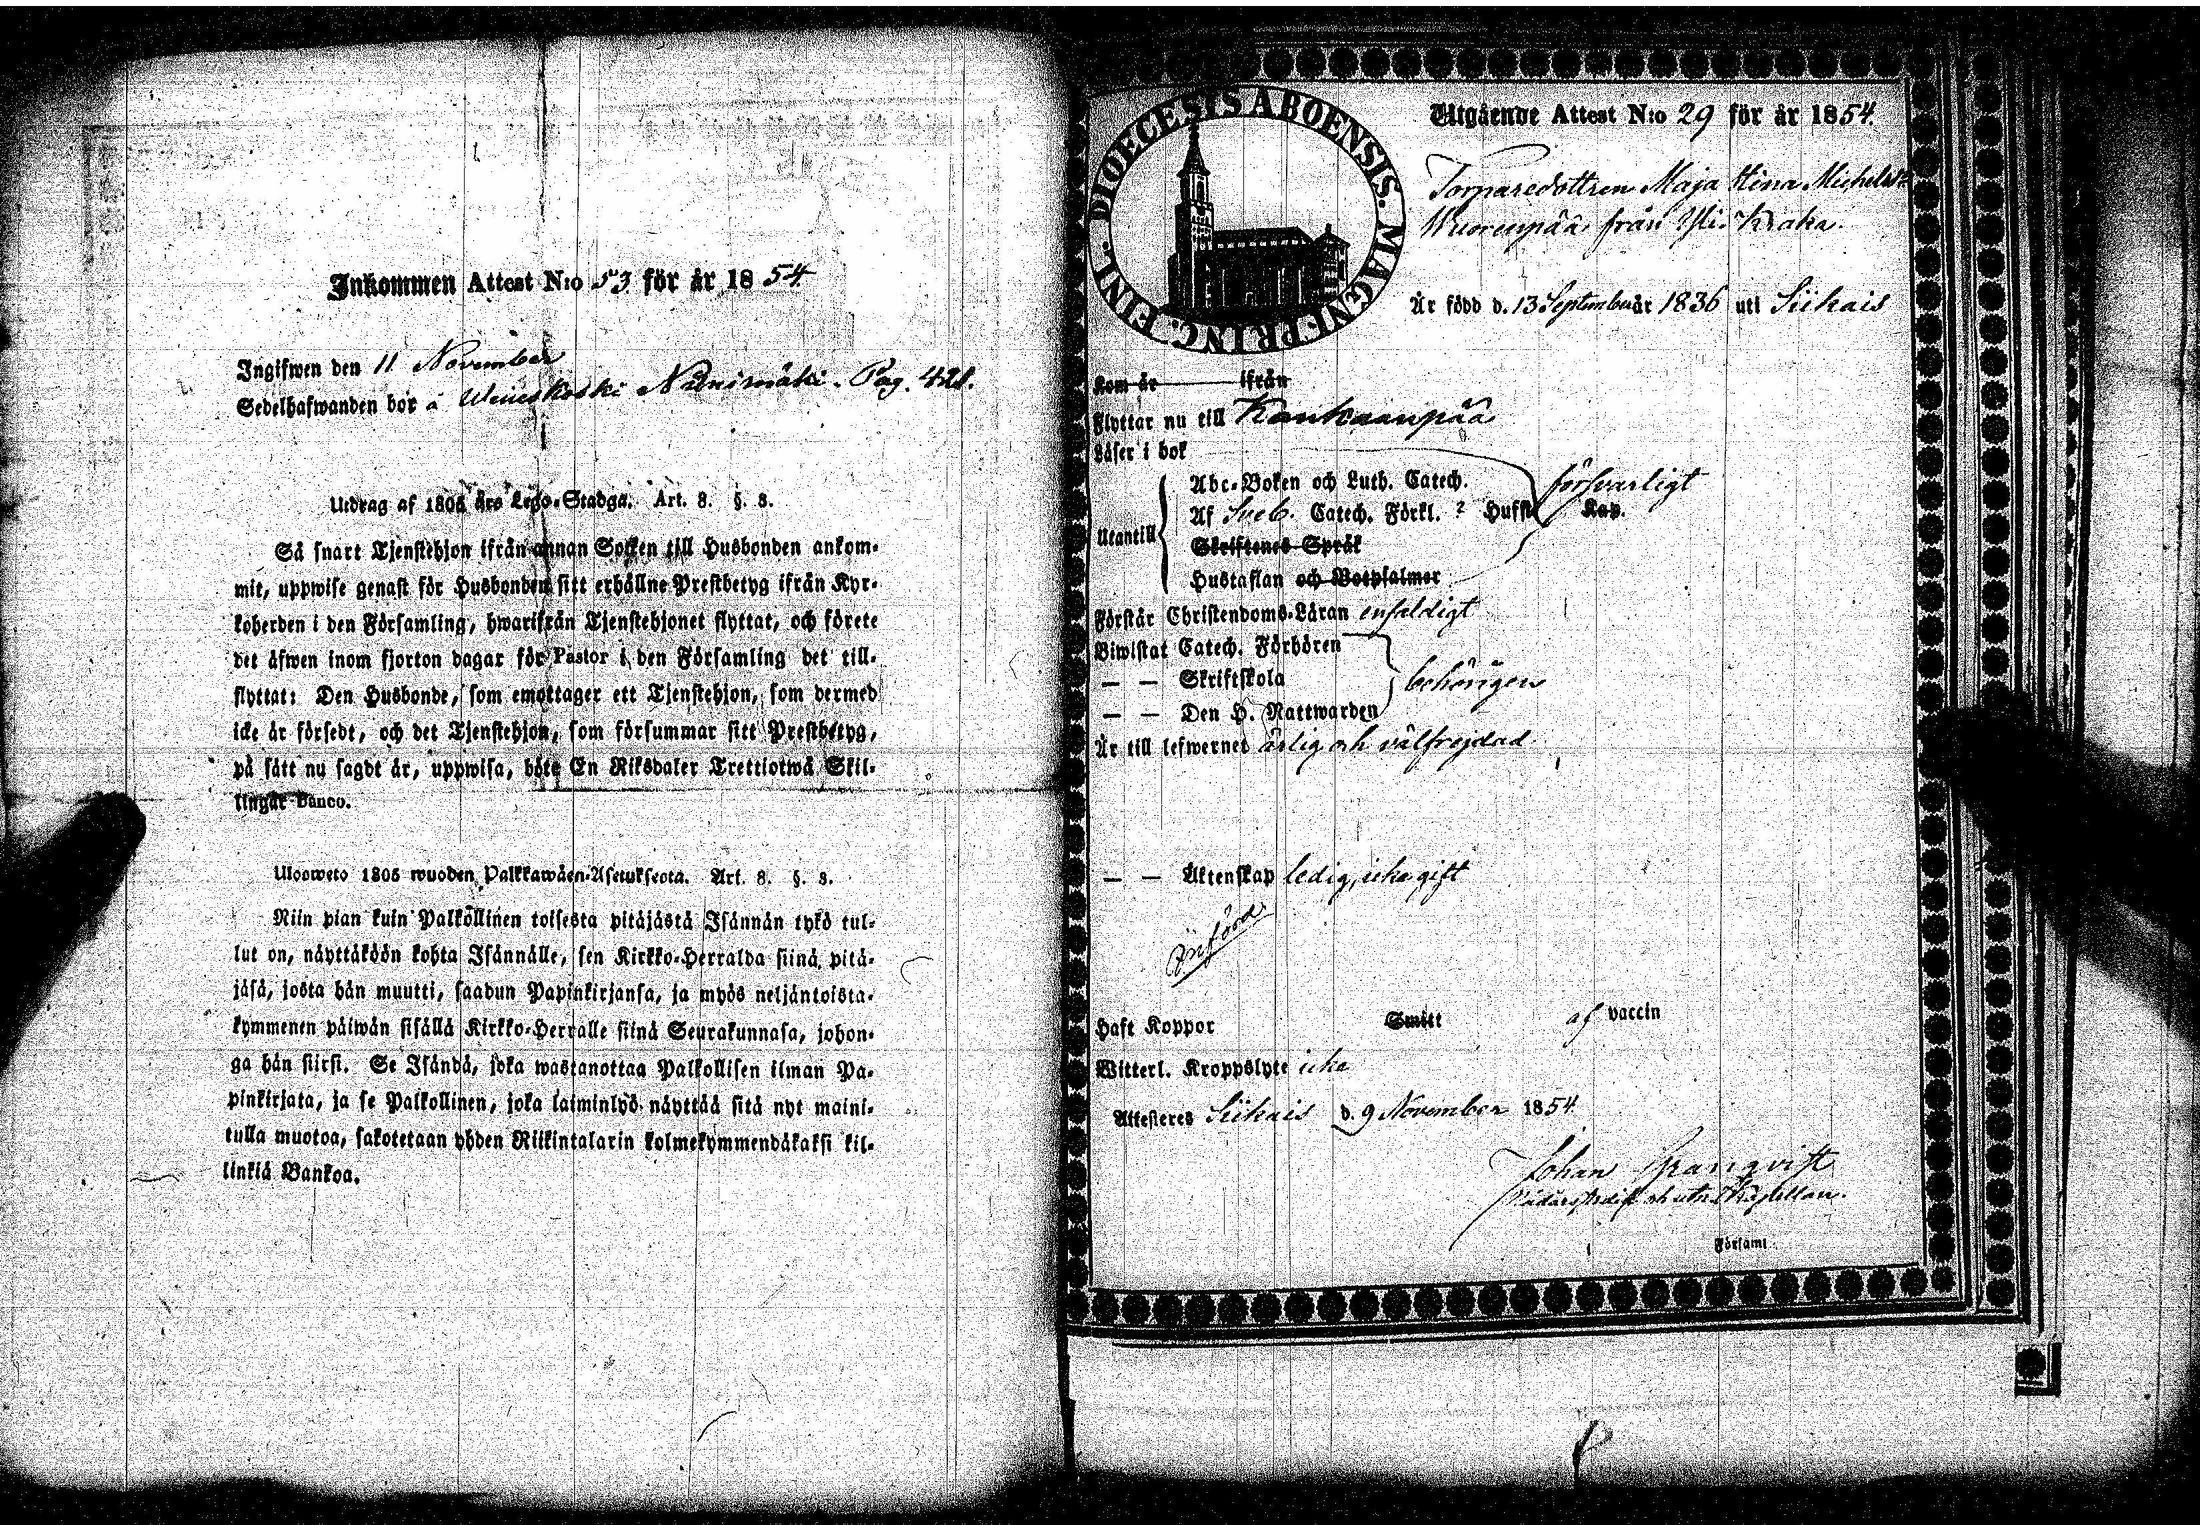 Inkommen Attest N:o 53 för år 1854
Ingifwen den 11 November
Sedelhafwanden bor å Weneskoski Niinimäki. Pag. 421.
Utdrag af 1805 års Lego-Stadga. Art. 8. §. 8.
Så snart Tjenstehjon ifrån annan Socken till Husbonden ankom-
mit, uppwise genast för Husbonden sitt erhållne Prestbetyg ifrån Kyr-
koherden i den Församling, hwarifrån Tjenstehjonet flyttat, och förete
det äfwen inom fjorton dagar för Pastor i den Församling det till-
flyttat: Den Husbonde, som emottager ett Tjenstehjon, som dermed
icke är försedt, och det Tjenstehjon, som försummar sitt Prestbetyg,
på sätt nu sagdt är, uppwisa, böte En Riksdaler Trettiotwå Skil-
lingar Banco.
Uloosweto 1805 wuoden Palkkawäen-Asetuksesta. Art. 8. §. 8.
Niin pian kuin Palkollinen toisesta pitäjästä Isännän tykö tul-
lut on, näyttäköön kohta Isännälle, sen Kirkko-Herralda siinä pitä-
jäsä, josta hän muutti, saadun Papinkirjansa, ja myös neljäntoista-
kymmenen päiwän sisällä Kirkko-Herralle siinä Seurakunnasa, johon-
ga hän siirsi. Se Isändä, joka wastanottaa Palkollisen ilman Pa-
pinkirjata, ja se Palkollinen, joka laiminlyö näyttää sitä nyt maini-
tulla muotoa, sakotetaan yhden Riikintalarin kolmekymmendäkaksi kil-
linkiä Bankoa.
DIOECESIS ABOENSIS. MAGNI PRINC. FINL.
Utgående Attest N:o 29 för år 1854.
Torparedottren Maja Stina Michelsd:r
Wuorenpää från Yli Kraka.
Är född d. 13 September år 1836 uti Siikais
Kom år ifrån
Flyttar nu till Kankaanpää
Läser i bok
Abc-Boken och Luth. Catech. försvarligt
Utantill Af Sveb. Catech. Förkl. 2 Hufst. Kap.
Skriftenes Språk
Hustaflan och Botpsalmer
Förstår Christendoms-Läran enfaldigt
Biwistat Catech. Förhören
— — Skriftskola behörigen
— — Den H. Nattwarden
Är till lefwernet ärlig och välfrejdad
— — Äktenskap ledig, icke gift
Införd
Haft Koppor Smitt af vaccin
Witterl. Kroppslyte icke
Attesteres Siikais d. 9 November 1854
Johan Granqvist
Församl.